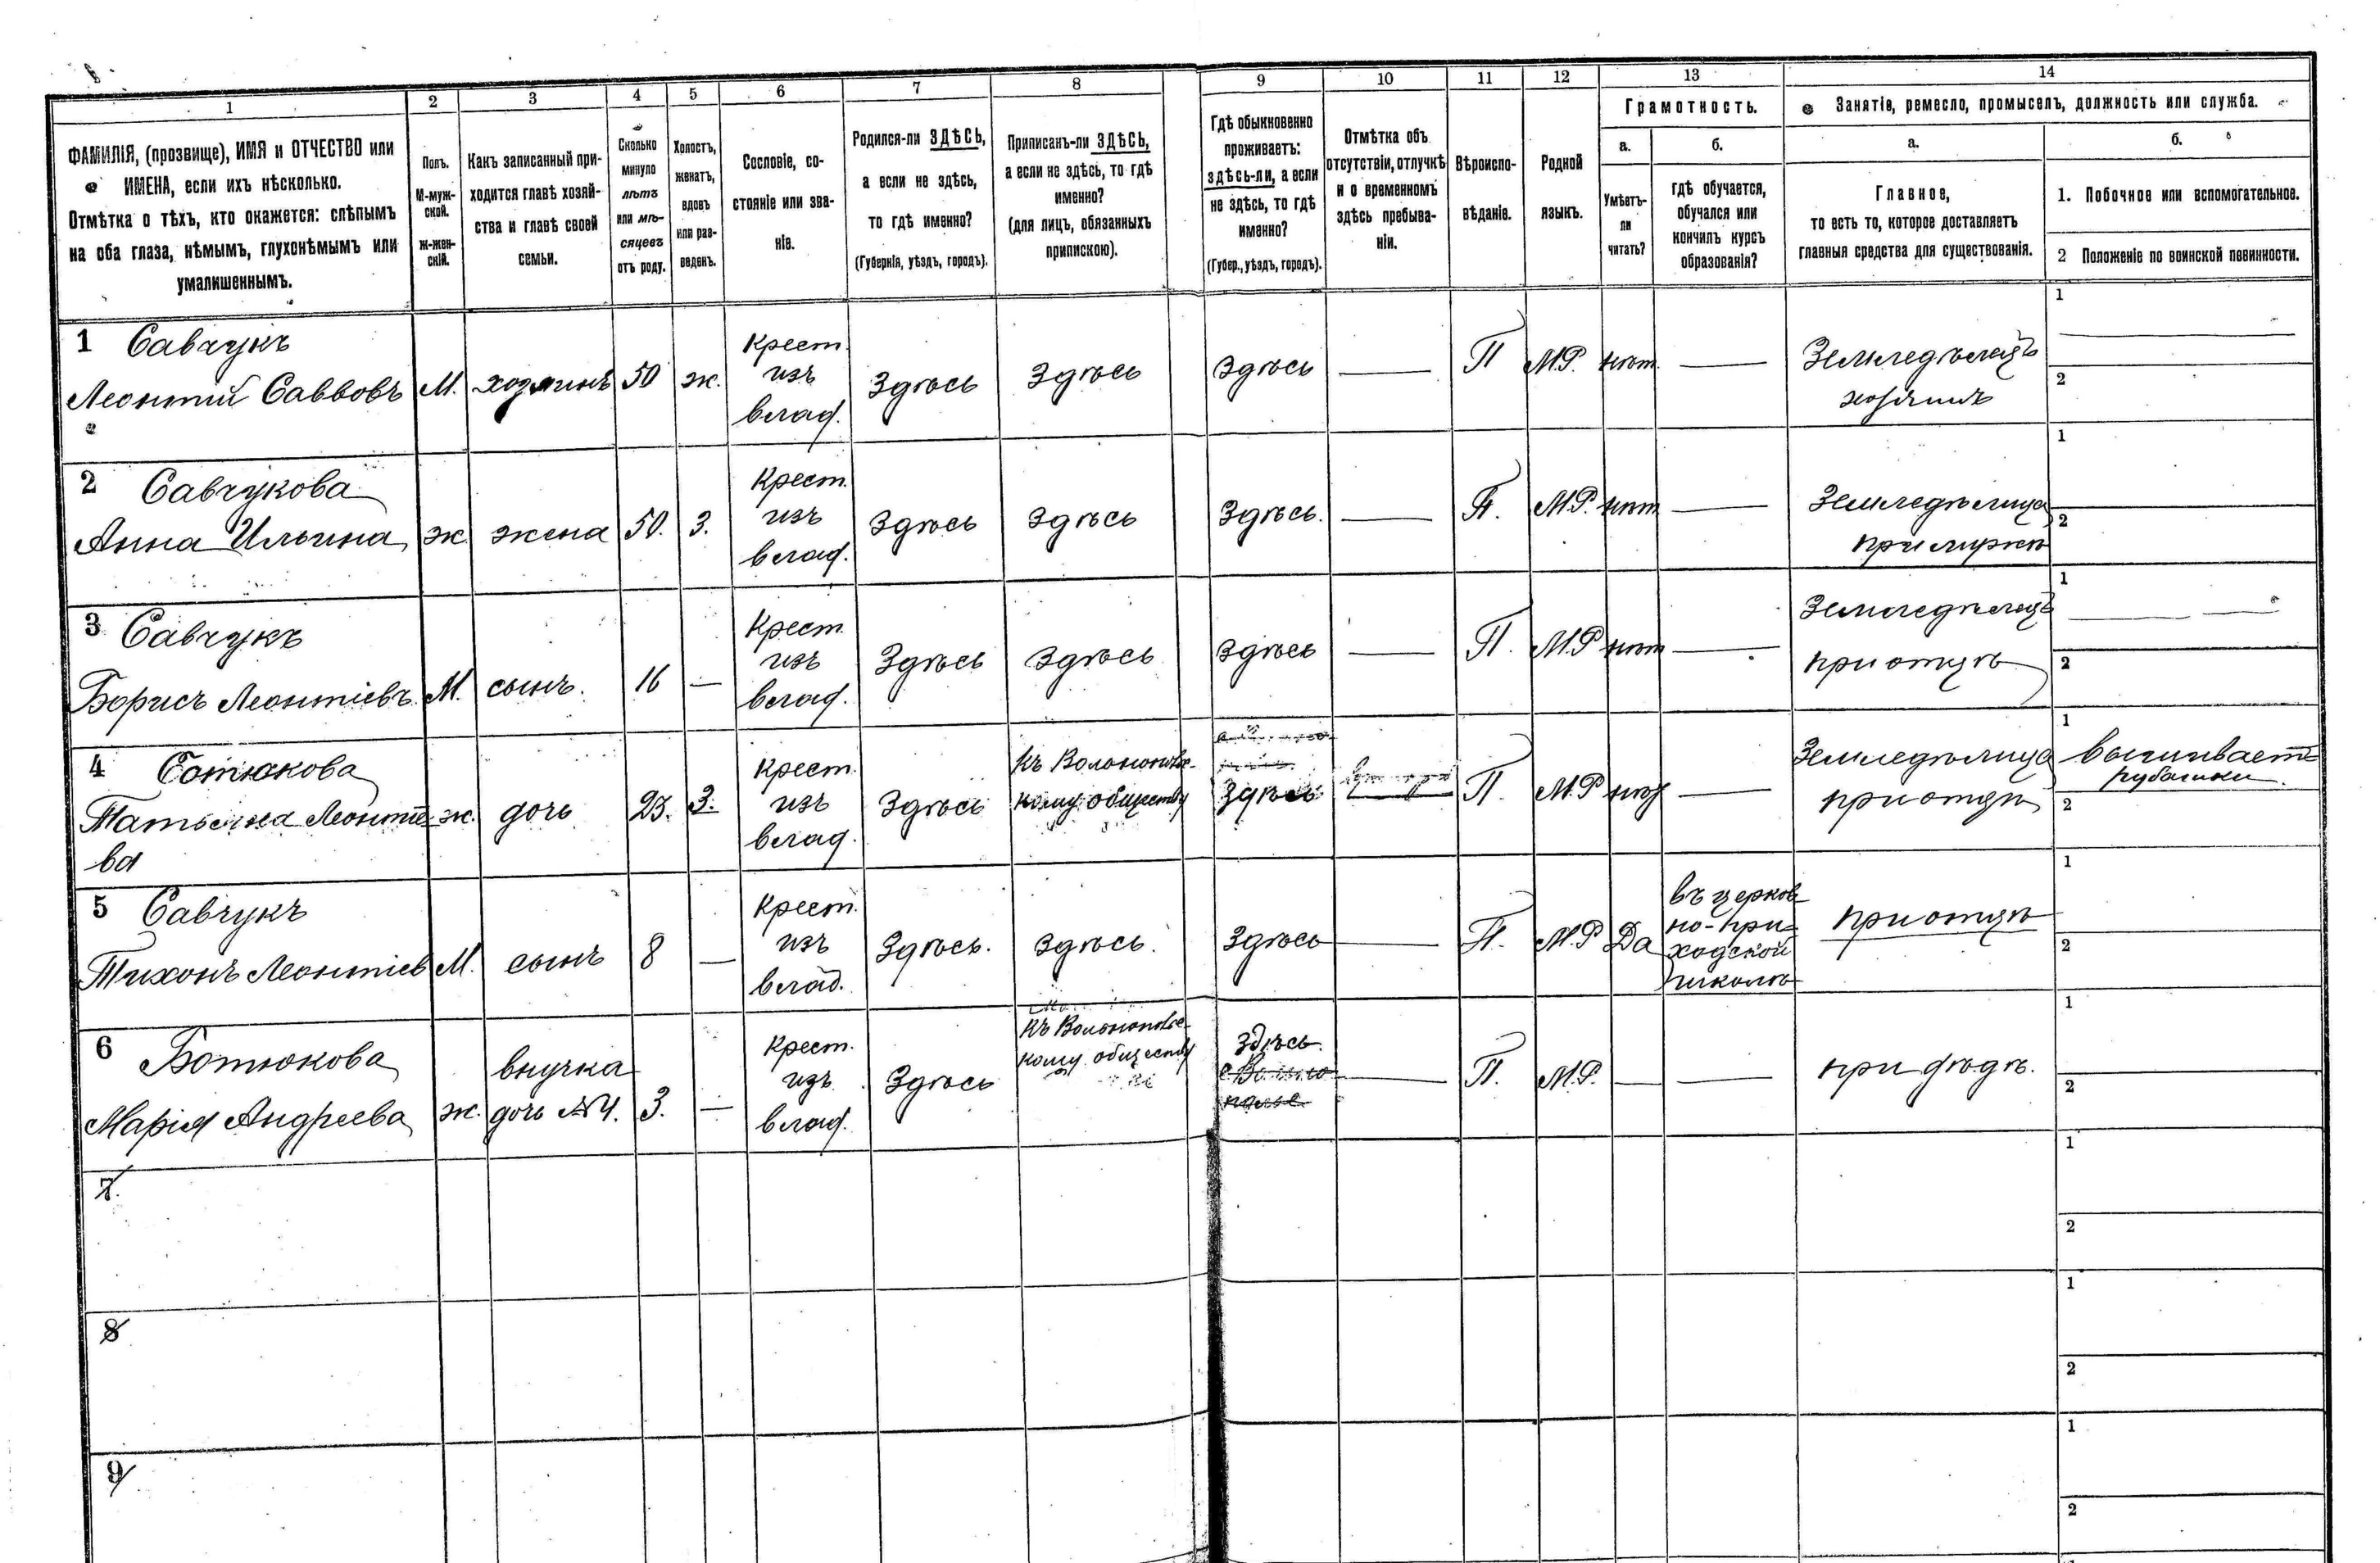 1
2
3
4
5
6
7
8
9
10
11
12
13
14
ФАМИЛІЯ, (прозвище), ИМЯ и ОТЧЕСТВО или
ИМЕНА, если ихъ нѣсколько.
Отмѣтка о тѣхъ, кто окажется: слѣпымъ
на оба глаза, нѣмымъ, глухонѣмымъ или
умалишеннымъ.
Полъ.
М-муж-
ской.
ж-жен-
скій.
Какъ записанный при-
ходится главѣ хозяй-
ства и главѣ своей
семьи.
Сколько
минуло
лѣтъ
или мѣ-
сяцевъ
отъ роду.
Холостъ,
женатъ,
вдовъ
или раз-
веденъ.
Сословіе, со-
стояніе или зва-
ніе.
Родился-ли ЗДѢСЬ,
а если не здѣсь,
то гдѣ именно?
(Губернія, уѣздъ, городъ).
Приписанъ-ли ЗДѢСЬ,
а если не здѣсь, то гдѣ
именно?
(для лицъ, обязанныхъ
припискою).
Гдѣ обыкновенно
проживаетъ:
здѣсь-ли, а если
не здѣсь, то гдѣ
именно?
(Губер., уѣздъ, городъ).
Отмѣтка объ
отсутствіи, отлучкѣ
и о временномъ
здѣсь пребыва-
ніи.
Вѣроиспо-
вѣданіе.
Родной
языкъ.
Грамотность.
а.
Умѣетъ-
ли
читать?
б.
гдѣ обучается,
обучался или
кончилъ курсъ
образованія?
Занятіе, ремесло, промыселъ, должность или служба.
а.
Главное,
то есть то, которое доставляетъ
главныя средства для существованія.
б.
1. Побочное или вспомогательное.
2 Положеніе по воинской повинности.
1 Савчукъ
Леонтій Саввовъ
М.
хозяинъ
50
ж.
Крест.
изъ
влад.
Здѣсь
Здѣсь
Здѣсь
—
П
М.Р.
нѣт
—
Земледѣлецъ
хозяинъ
1
2
2 Савчукова
Анна Ильина
ж
жена
50.
З.
Крест.
изъ
влад.
Здѣсь
Здѣсь
Здѣсь.
—
П.
М.Р.
нѣт
—
Земледѣлица
при мужѣ
1
2
3 Савчукъ
Борисъ Леонтіевъ
М.
сынъ.
16
—
Крест.
изъ
влад.
Здѣсь
Здѣсь
Здѣсь
—
П.
М.Р
нѣт
—
Земледѣлецъ
при отцѣ
1
2
4
Татьяна Леонтіе-
ва
ж.
дочь
23.
З.
Крест.
изъ
влад.
Здѣсь
кому обществу
Здѣсь
П.
М.Р
—
Земледѣлица
при отцѣ
1
вышиваетъ
рубашки
2
5 Савчукъ
Тихонъ Леонтіев
М.
сынъ
8
—
Крест.
изъ
влад.
Здѣсь.
Здѣсь.
Здѣсь
—
П.
М.Р
Да
въ церков-
но-при-
ходской
школѣ
при отцѣ
1
2
6 Ботюкова
Марія Андреева
ж.
внучка
дочь №4.
3.
—
Крест.
изъ
влад.
Здѣсь
кому обществу
здѣсь.
—
П.
М.Р.
—
—
при дѣдѣ.
1
2
7.
1
2
8
1
2
9
1
2